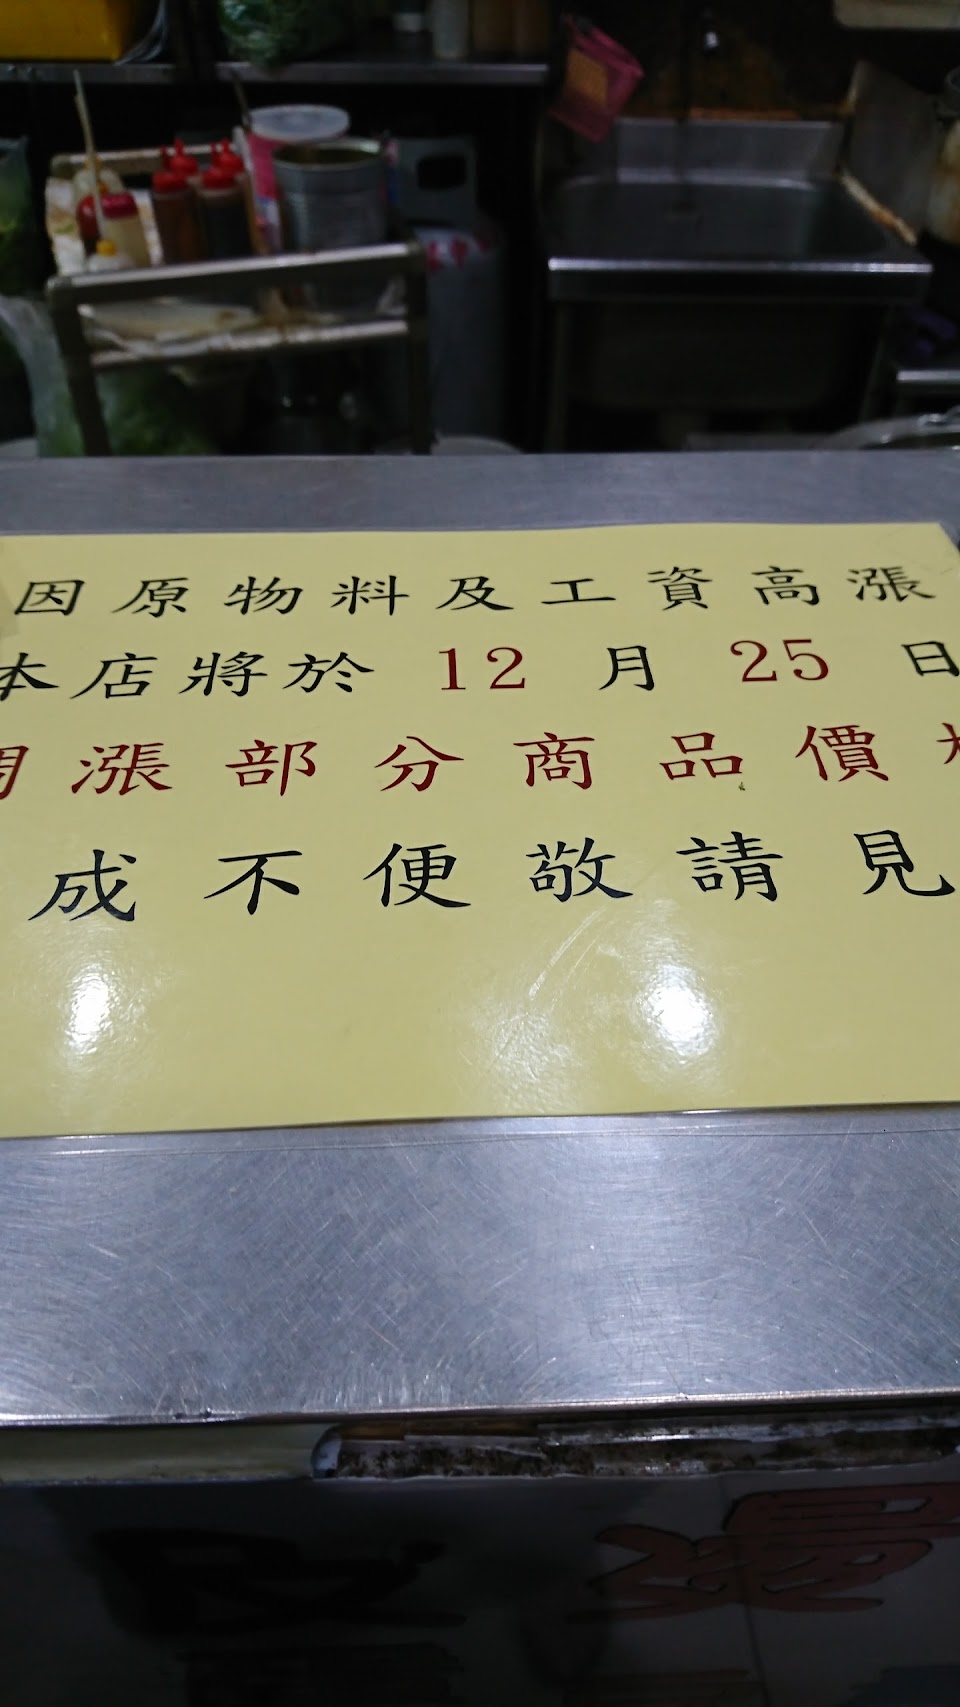 因原物料及工資高漲
本店將於 12 月 25 日
調漲部分商品價格
成不便敬請見